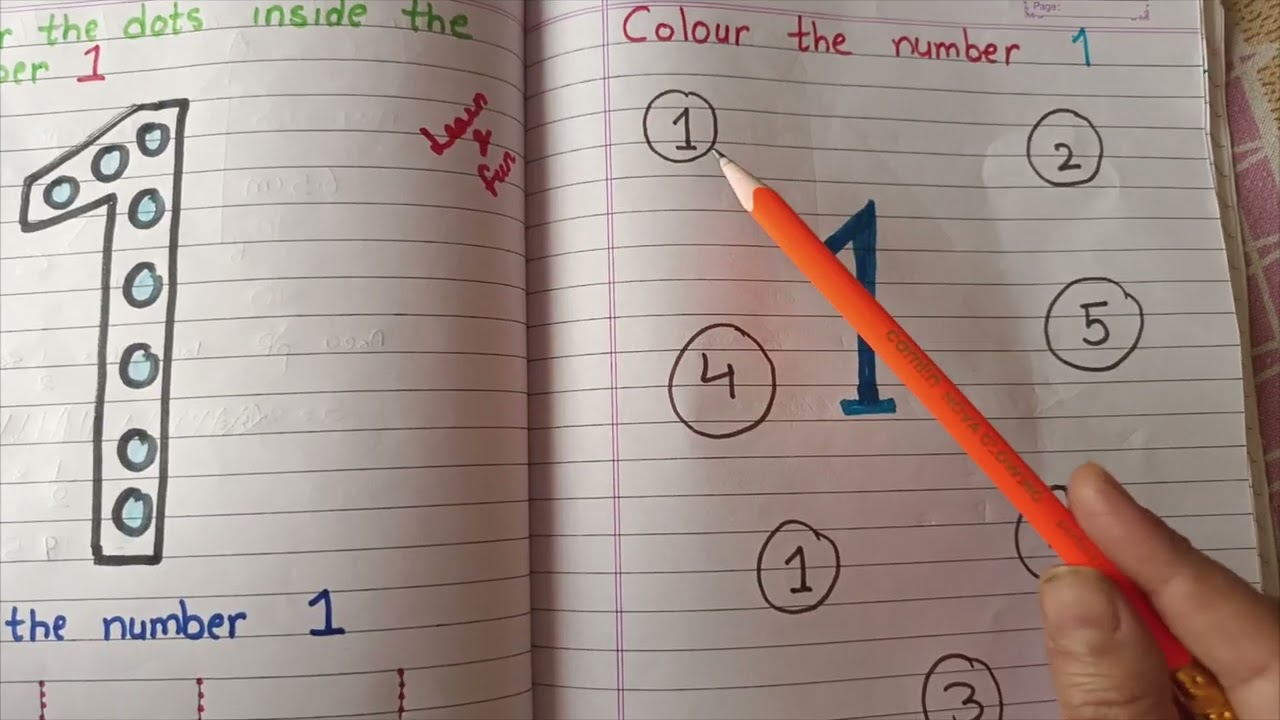 r the dots inside the
ber 1
Learn
&
fun
the number 1
Page:
Colour the number 1
1
2
1
4
5
1
3
camlin NOVA